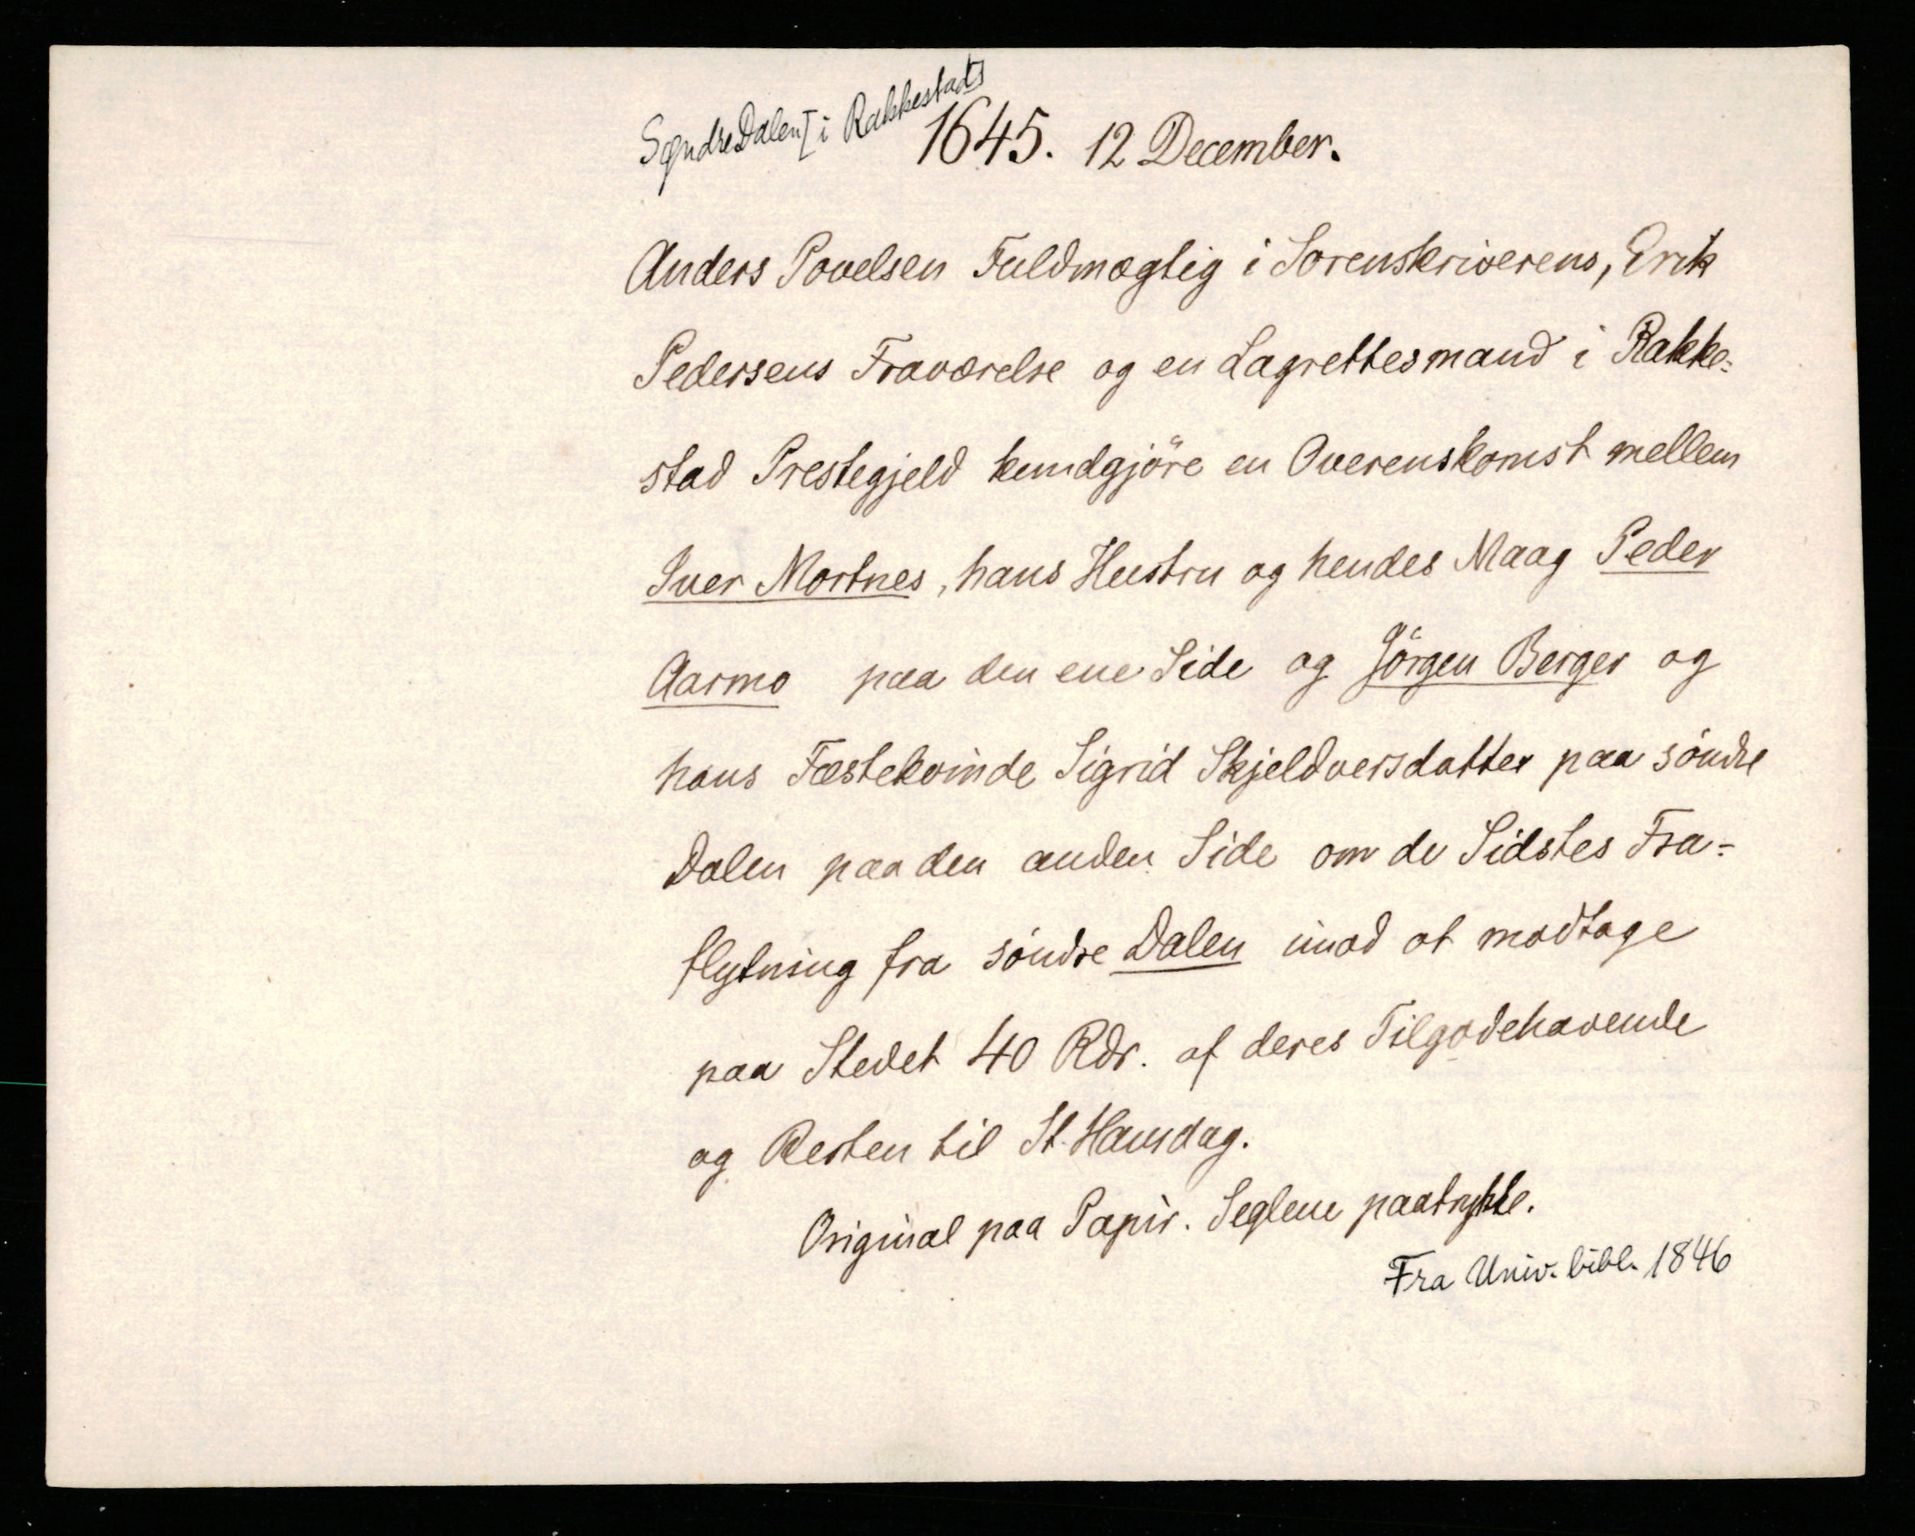 Søndre Dalen [i Rakkestad]
1645. 12 December.
Anders Povelsen Fuldmægtig i Sorenskriverens, Erik
Pedersens Fraværelse og en Lagrettesmand i Rakke-
stad Prestegjeld kundgjöre en Overenskomst mellem
Iver Mortnes, hans Hustru og hendes Maag Peder
Aarmo paa den ene Side og Jörgen Berger og
hans Fæstekvinde Sigrid Skjeldversdatter paa söndre
Dalen paa den anden Side om de Sidstes Fra-
flytning fra söndre Dalen imod at modtage
paa Stedet 40 Rdr. af deres Tilgodehavende
og Resten til St. Hansdag.
Original paa Papir. Seglene paatrykte.
Fra Univ. bibl. 1846